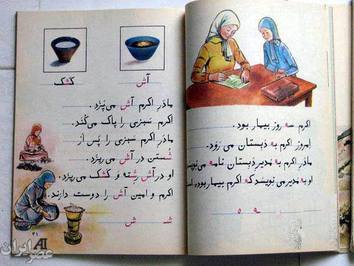 اکرم سه روز بیمار بود.
امروز اکرم به دبستان می رود.
مادر اکرم به مدیر دبستان نامه می نویسد
او به مدیر می نویسد که اکرم بیمار بوده است
ه ه
آش
کشک
مادر اکرم آش می پزد.
اکرم سبزی را پاک می کند.
مادر اکرم سبزی را پس از
شستن در آش می ریزد.
او در آش رشته و کشک می ریزد.
اکرم و امین آش را دوست دارند.
ش ش
۴۱
عصر ایران